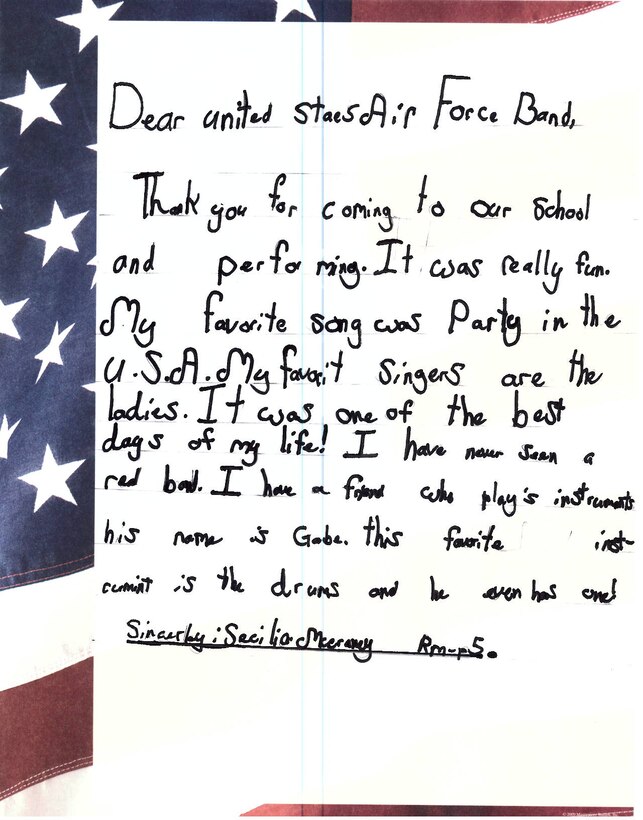 Dear united staesAir Force Band,
Thank you for coming to our school
and perfo ming. It was really fun.
My favorite song was Party in the
U.S.A. My favorit singers are the
ladies. It was one of the best
days of my life! I have never seen a
red band. I have a friend who play's instruments
his name is Gabe. this favorite inst-
rumint is the drums and he even has one!
Sincerly: Secilia Rm-p5.